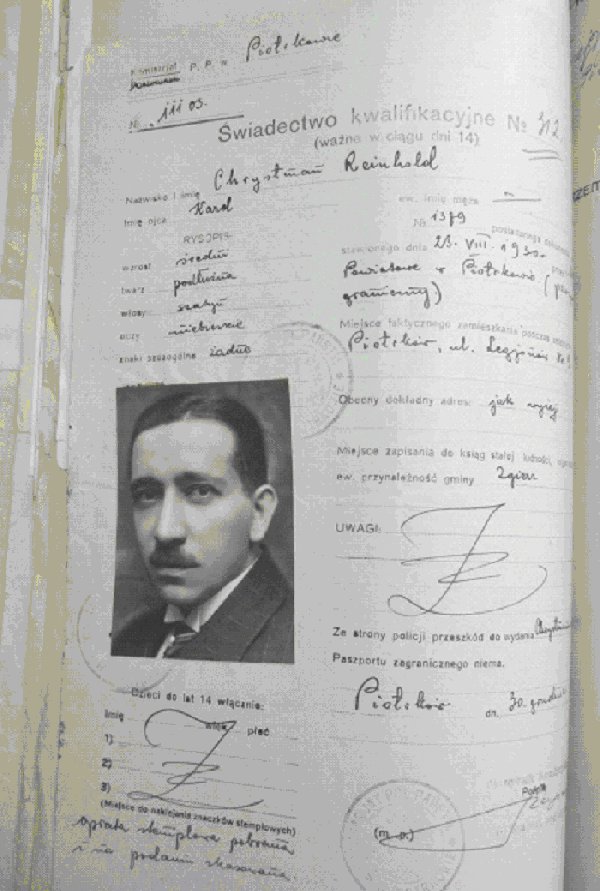 Komisarjat P. P. w Piotrkowie
№ III 03.
Świadectwo kwalifikacyjne № 312
(ważne w ciągu dni 14)
Nazwisko i imię Chrystman Reinhold
Imię ojca Karol
ew. imię męża —
RYSOPIS
№ 1379
wzrost średni
stawionego dnia 23. VIII. 1930
twarz podłużna
Powiatowe w Piotrkowie (
włosy szatyn
graniczny)
oczy niebieskie
Miejsce faktycznego zamieszkania podczas
znaki szczególne żadne
Piotrków, ul.
Obecny dokładny adres: jak wyżej
Miejsce zapisania do ksiąg stałej ludności,
ew. przynależność gminy Zgierz
UWAGI:
Ze strony policji przeszkód do wydania
Paszportu zagranicznego niema.
Piotrków dn. 30. grudnia
Dzieci do lat 14 włącznie:
Imię wiek płeć
1)
2)
3)
(Miejsce do naklejenia znaczków stemplowych)
opłata stemplowa pobrana
i na podaniu skasowana
(m. p.)